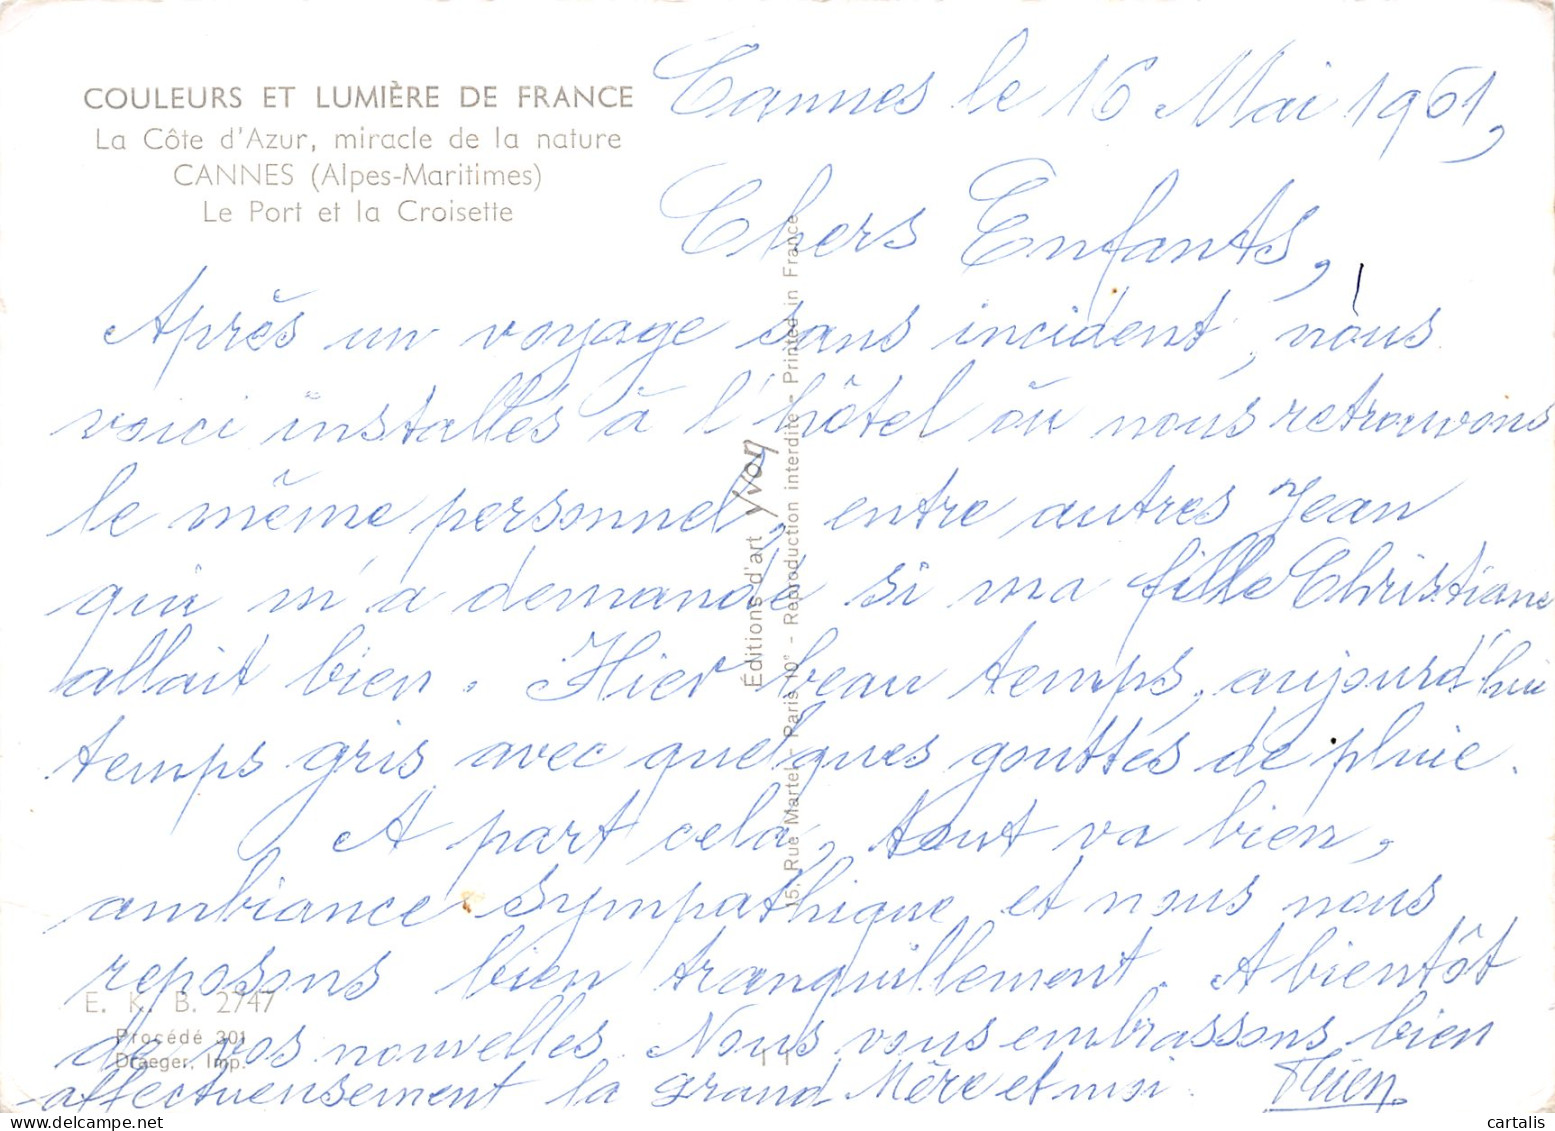 COULEURS ET LUMIÈRE DE FRANCE
La Côte d'Azur, miracle de la nature
CANNES (Alpes-Maritimes)
Le Port et la Croisette
Cannes le 16 Mai 1961,
Chers Enfants,
Après un voyage sans incident, nous
voici installés à l'hôtel où nous retrouvons
le même personnel, entre autres Jean
qui m'a demandé si ma fille Christiane
allait bien. Hier beau temps, aujourd'hui
temps gris avec quelques gouttes de pluie.
A part cela, tout va bien,
ambiance sympathique et nous nous
reposons bien tranquillement. A bientôt
de vos nouvelles. Nous vous embrassons bien
affectueusement la grand Mère et moi.
Éditions d'art yvon
15, Rue Martel - Paris 10e - Reproduction interdite - Printed in France
E. K. B. 2747
Procédé 301
Draeger, Imp.
1 1
cartalis